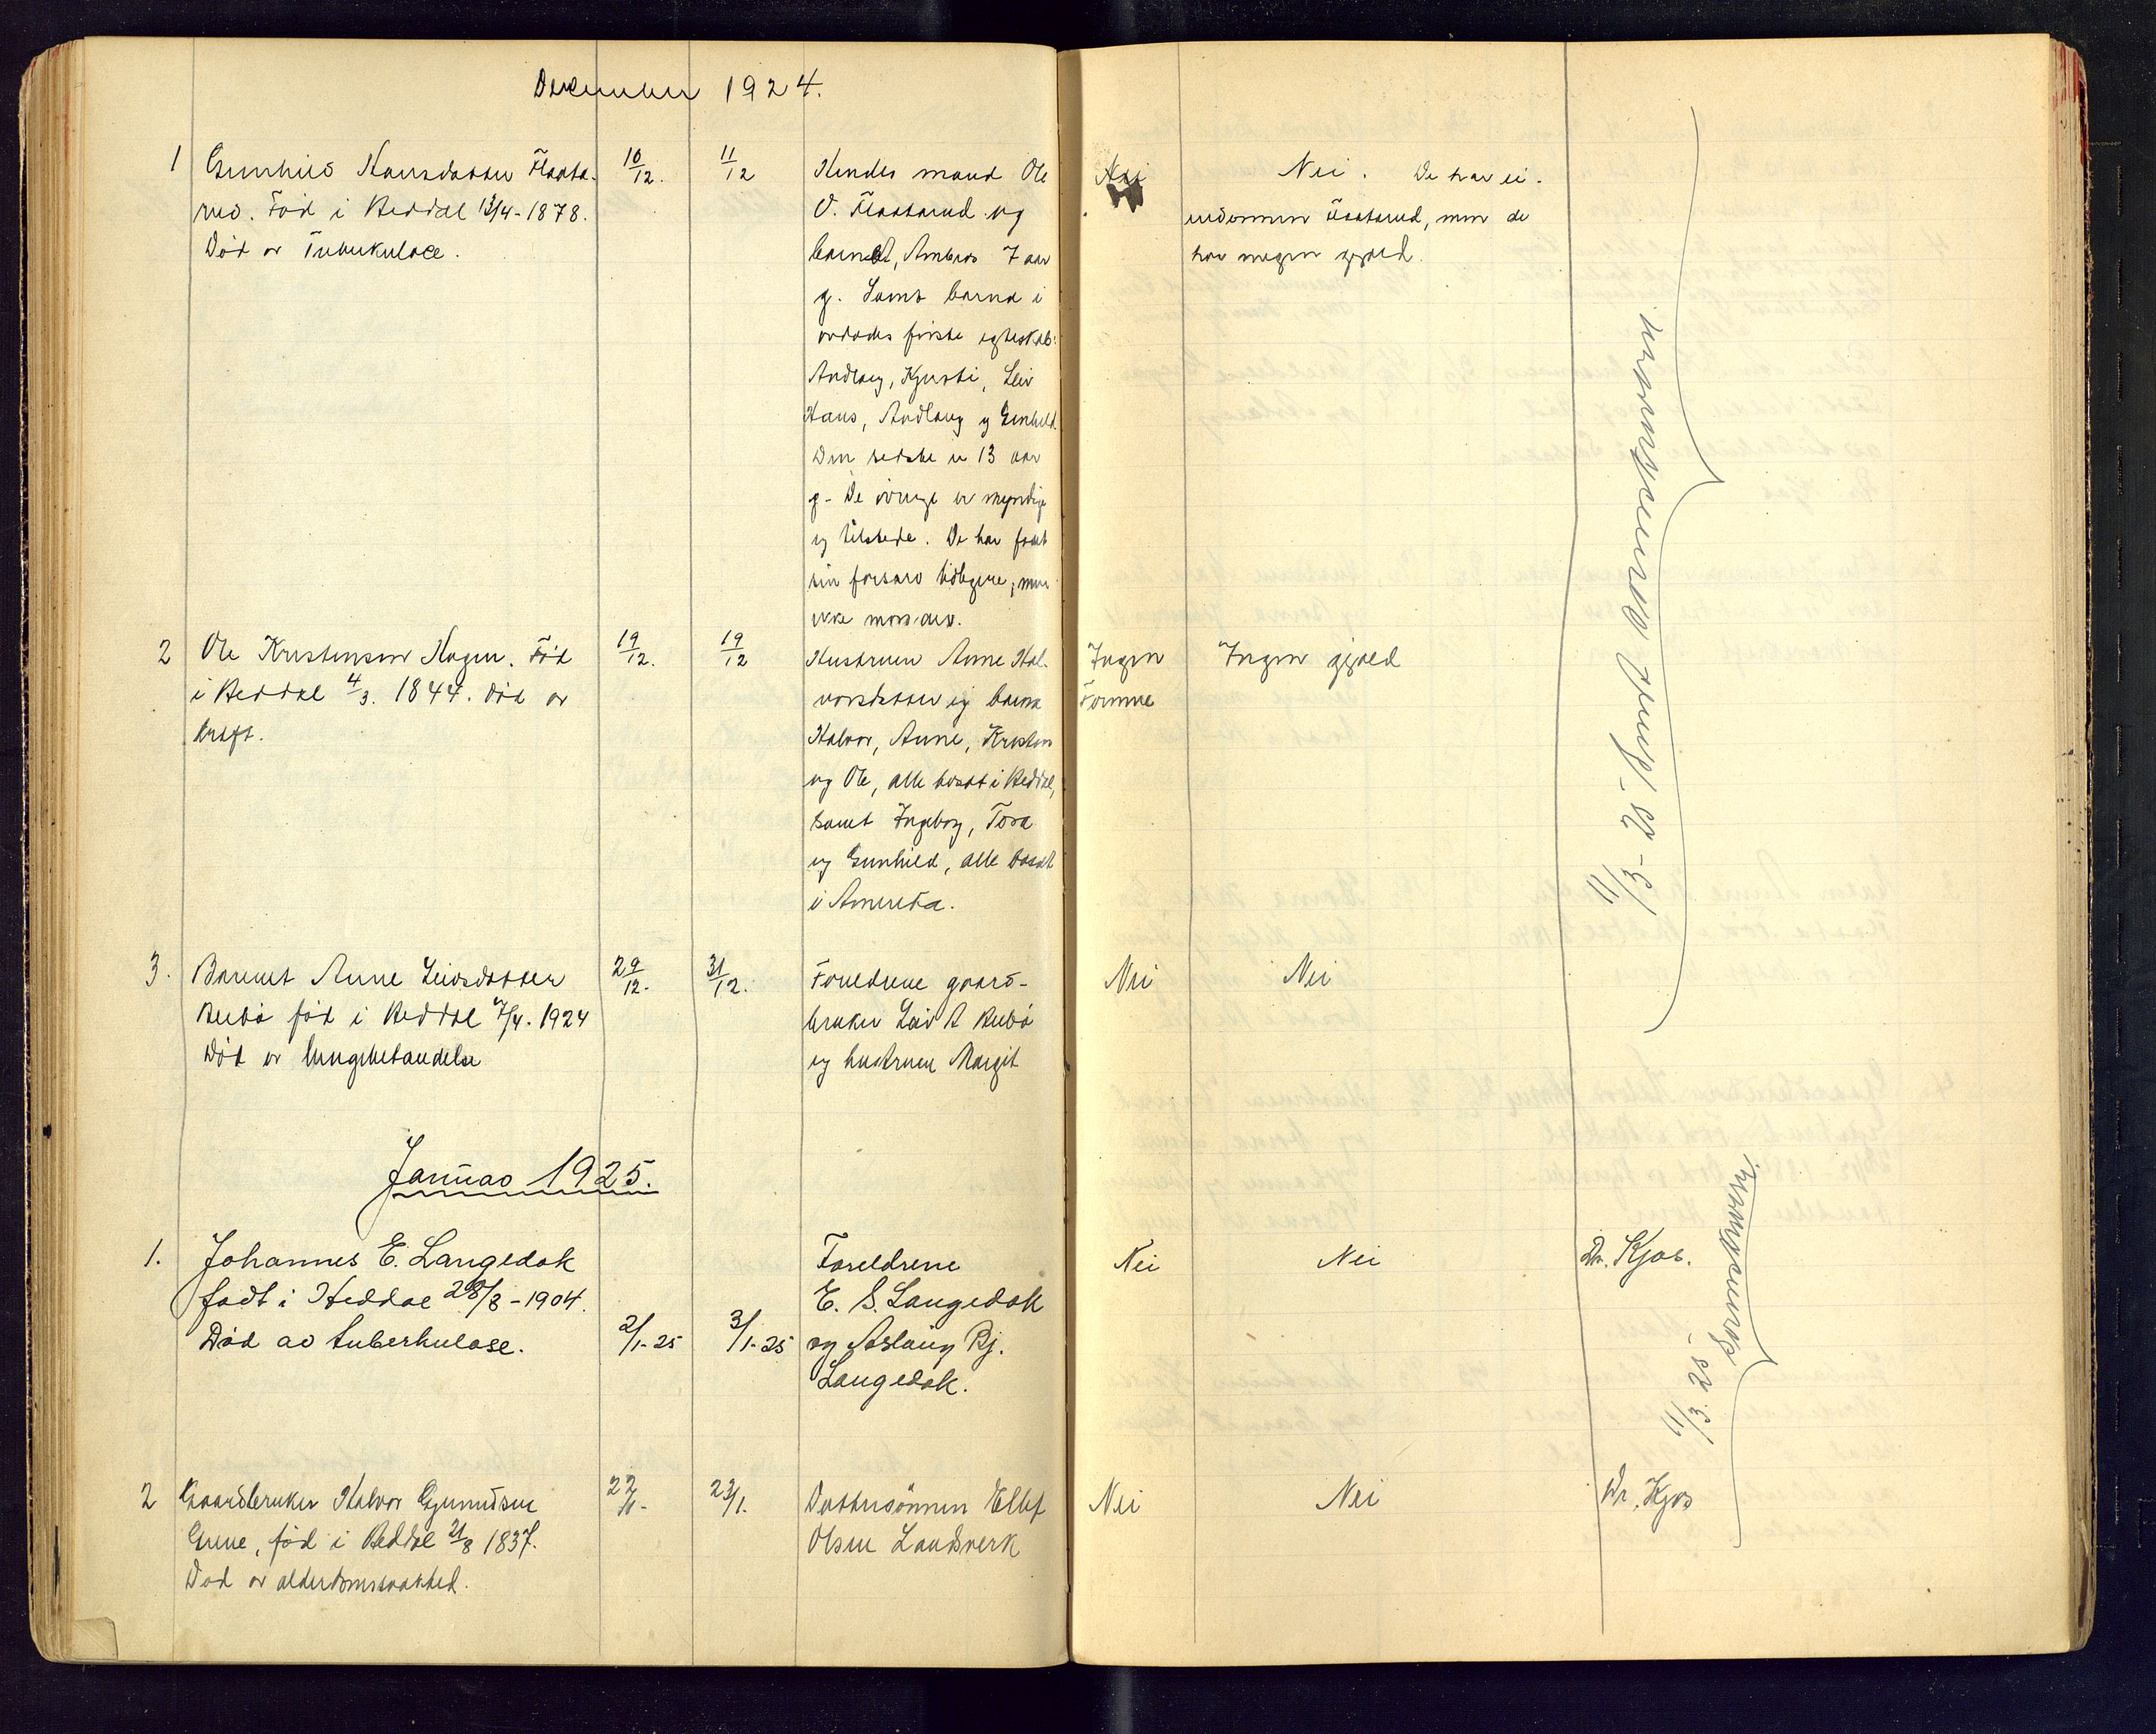 December 1924.
1 Gunhild Hansdatter Flaata-
rud. Fød i Heddal 13/4-1878.
Død av Tuberkulose.
10/12.
11/12
Hendes mand Ole
O. Flaatarud og
barnet, Ambros 7 aar
g. Samt barna i
avdødes første egteskab:
Andberg, Kjersti, Leiv
Hans, Aadlaug og Gunhild.
Den sidste er 13 aar
g. De øvrige er myndige
og tilstede. De har faat
sin farsarv tidligere, men
ikke morsarv.
Nei
Nei. De har ei-
endommen Flaatarud, men de
har megen gjæld.
2 Ole Kristensen Hagen. Fød
i Heddal 4/3. 1844. Død av
kræft.
19/12.
19/12
Hustruen Anne Hal-
vorsdatter og barna
Halvor, Anne, Kristen
og Ole, alle bosat i Heddal,
samt Ingeborg, Tora
og Gunhild, alle bosat
i Amerika.
Ingen
Formue
Ingen gjæld
3. Barnet Anne Leivsdatter
født i Heddal 1924
Død av lungebetændelse
29/12.
31/12.
Foreldrene gaard-
bruker Leiv A
og hustruen Margit
Nei
Nei
11/3-25. Sendt Sorenskriveren.
Januar 1925.
1. Johannes E. Langedok
født i Heddal 28/8-1904.
Død av tuberkulose.
2/1-25
3/1-25
Foreldrene
E. S. Langedok
og Aslaug Bj.
Langedok.
Nei
Nei
Dr. Kjos.
2 Gaardbruker Halvor Gjermundsen
Grene, fød i Heddal 21/8 1837.
Død av alderdomssvakhed.
22/1-
23/1.
Dattersønnen Ellef
Olsen Landsverk
Nei
Nei
Dr. Kjos
11/3. 25 Sorenskriveren.